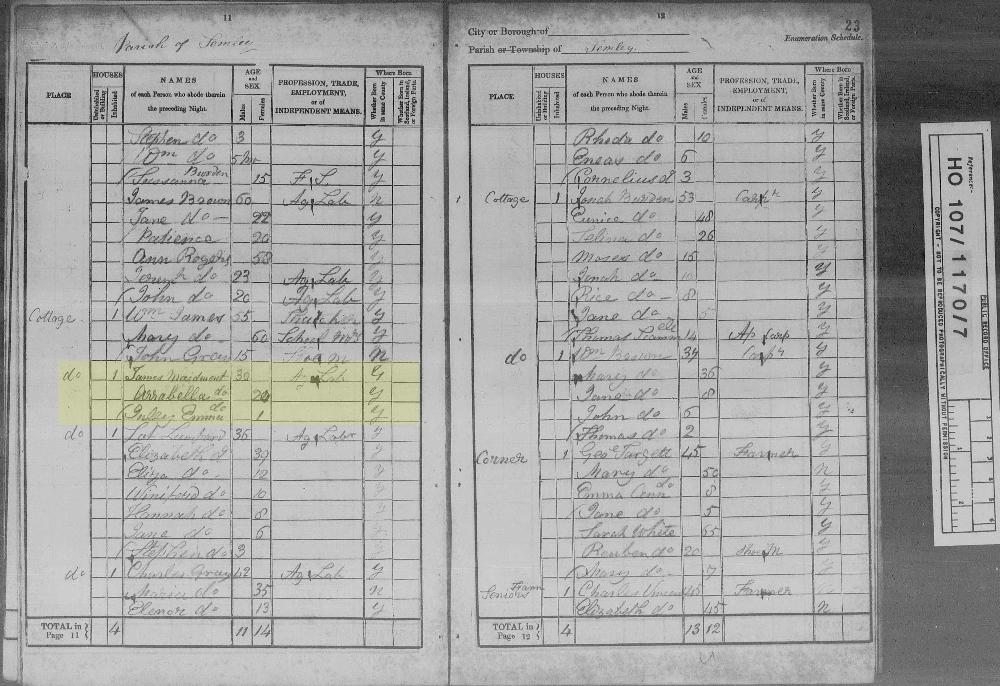 11
Parish of Semley
PLACE
HOUSES
Uninhabited or Building
Inhabited
NAMES
of each Person who abode therein the preceding Night.
AGE and SEX
Males
Females
PROFESSION, TRADE, EMPLOYMENT, or of INDEPENDENT MEANS.
Where Born
Whether Born in same County
Whether Born in Scotland, Ireland, or Foreign Parts.
Stephen do 3 y
Wm do 5 Mo y
Burden
Sussanna 15 F. S. y
James Brown 60 Ag Lab n
Jane do 22 y
Patience 20 y
Ann Rogers y
Joseph do 23 Ag Lab
John do 20 Ag Lab y
Cottage 1 Wm James 55 Thatcher y
Mary do 60 School y
John Gray 15 n
do 1 James Maidment 30 Ag Lab y
Arrabella do y
do
Emma 1 y
do 1 36 Ag Labr y
Elizabeth d 39 y
Eliza do 12 y
Winifred do 10 y
Hannah do 8 y
Jane do 6 y
Stephen do 3 y
do 1 Charles Gray 42 Ag Lab y
Maria do 35 n
Elenor do 13 y
TOTAL in Page 11 4 11 14
12
23
City or Borough of
Enumeration Schedule.
Parish or Township of Semley
PLACE
HOUSES
Uninhabited or Building
Inhabited
NAMES
of each Person who abode therein the preceding Night.
AGE and SEX
Males
Females
PROFESSION, TRADE, EMPLOYMENT, or of INDEPENDENT MEANS.
Where Born
Whether Born in same County
Whether Born in Scotland, Ireland, or Foreign Parts.
Rhoda do 10 y
Eneas do 6 y
Cornelius d 3 y
Cottage 1 Burden 53 Carpr y
Eunice do 48 y
Selina do 26 y
Moses do 15 y
do 10 y
Rice do 8 y
Jane do 5 y
Thomas 14 Ap Carp y
do 1 Wm Brown 34 Carpr y
Mary do 36 y
Jane do 8 y
John do 6 y
Thomas do 2 y
Corner 1 Geo Targett 45 Farmer y
Mary do 50 n
do
Emma Ann 8 y
Jane do 5 y
Sarah White 65 y
Reuben do 20 Shoe M y
Mary do 7 y
Farm
Seniors 1 Charles 45 Farmer
Elizabeth do 45 n
TOTAL in Page 12 4 13 12
Reference:-
HO 107/1170/7
PUBLIC RECORD OFFICE
COPYRIGHT - NOT TO BE REPRODUCED PHOTOGRAPHICALLY WITHOUT PERMISSION